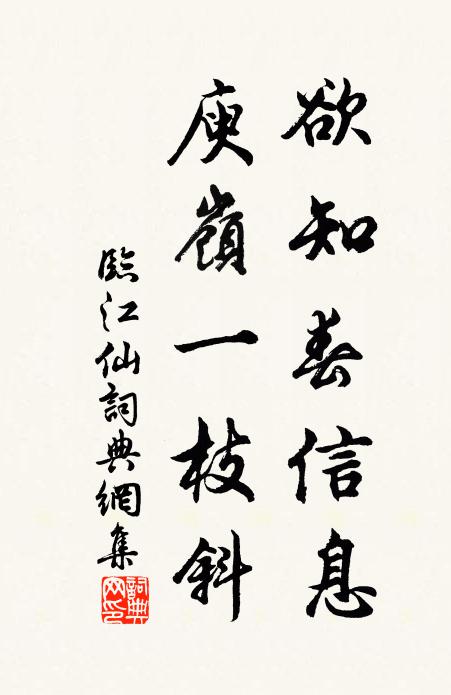 欲知春信息
庾嶺一枝斜
臨江仙詞典網集
詞典网印